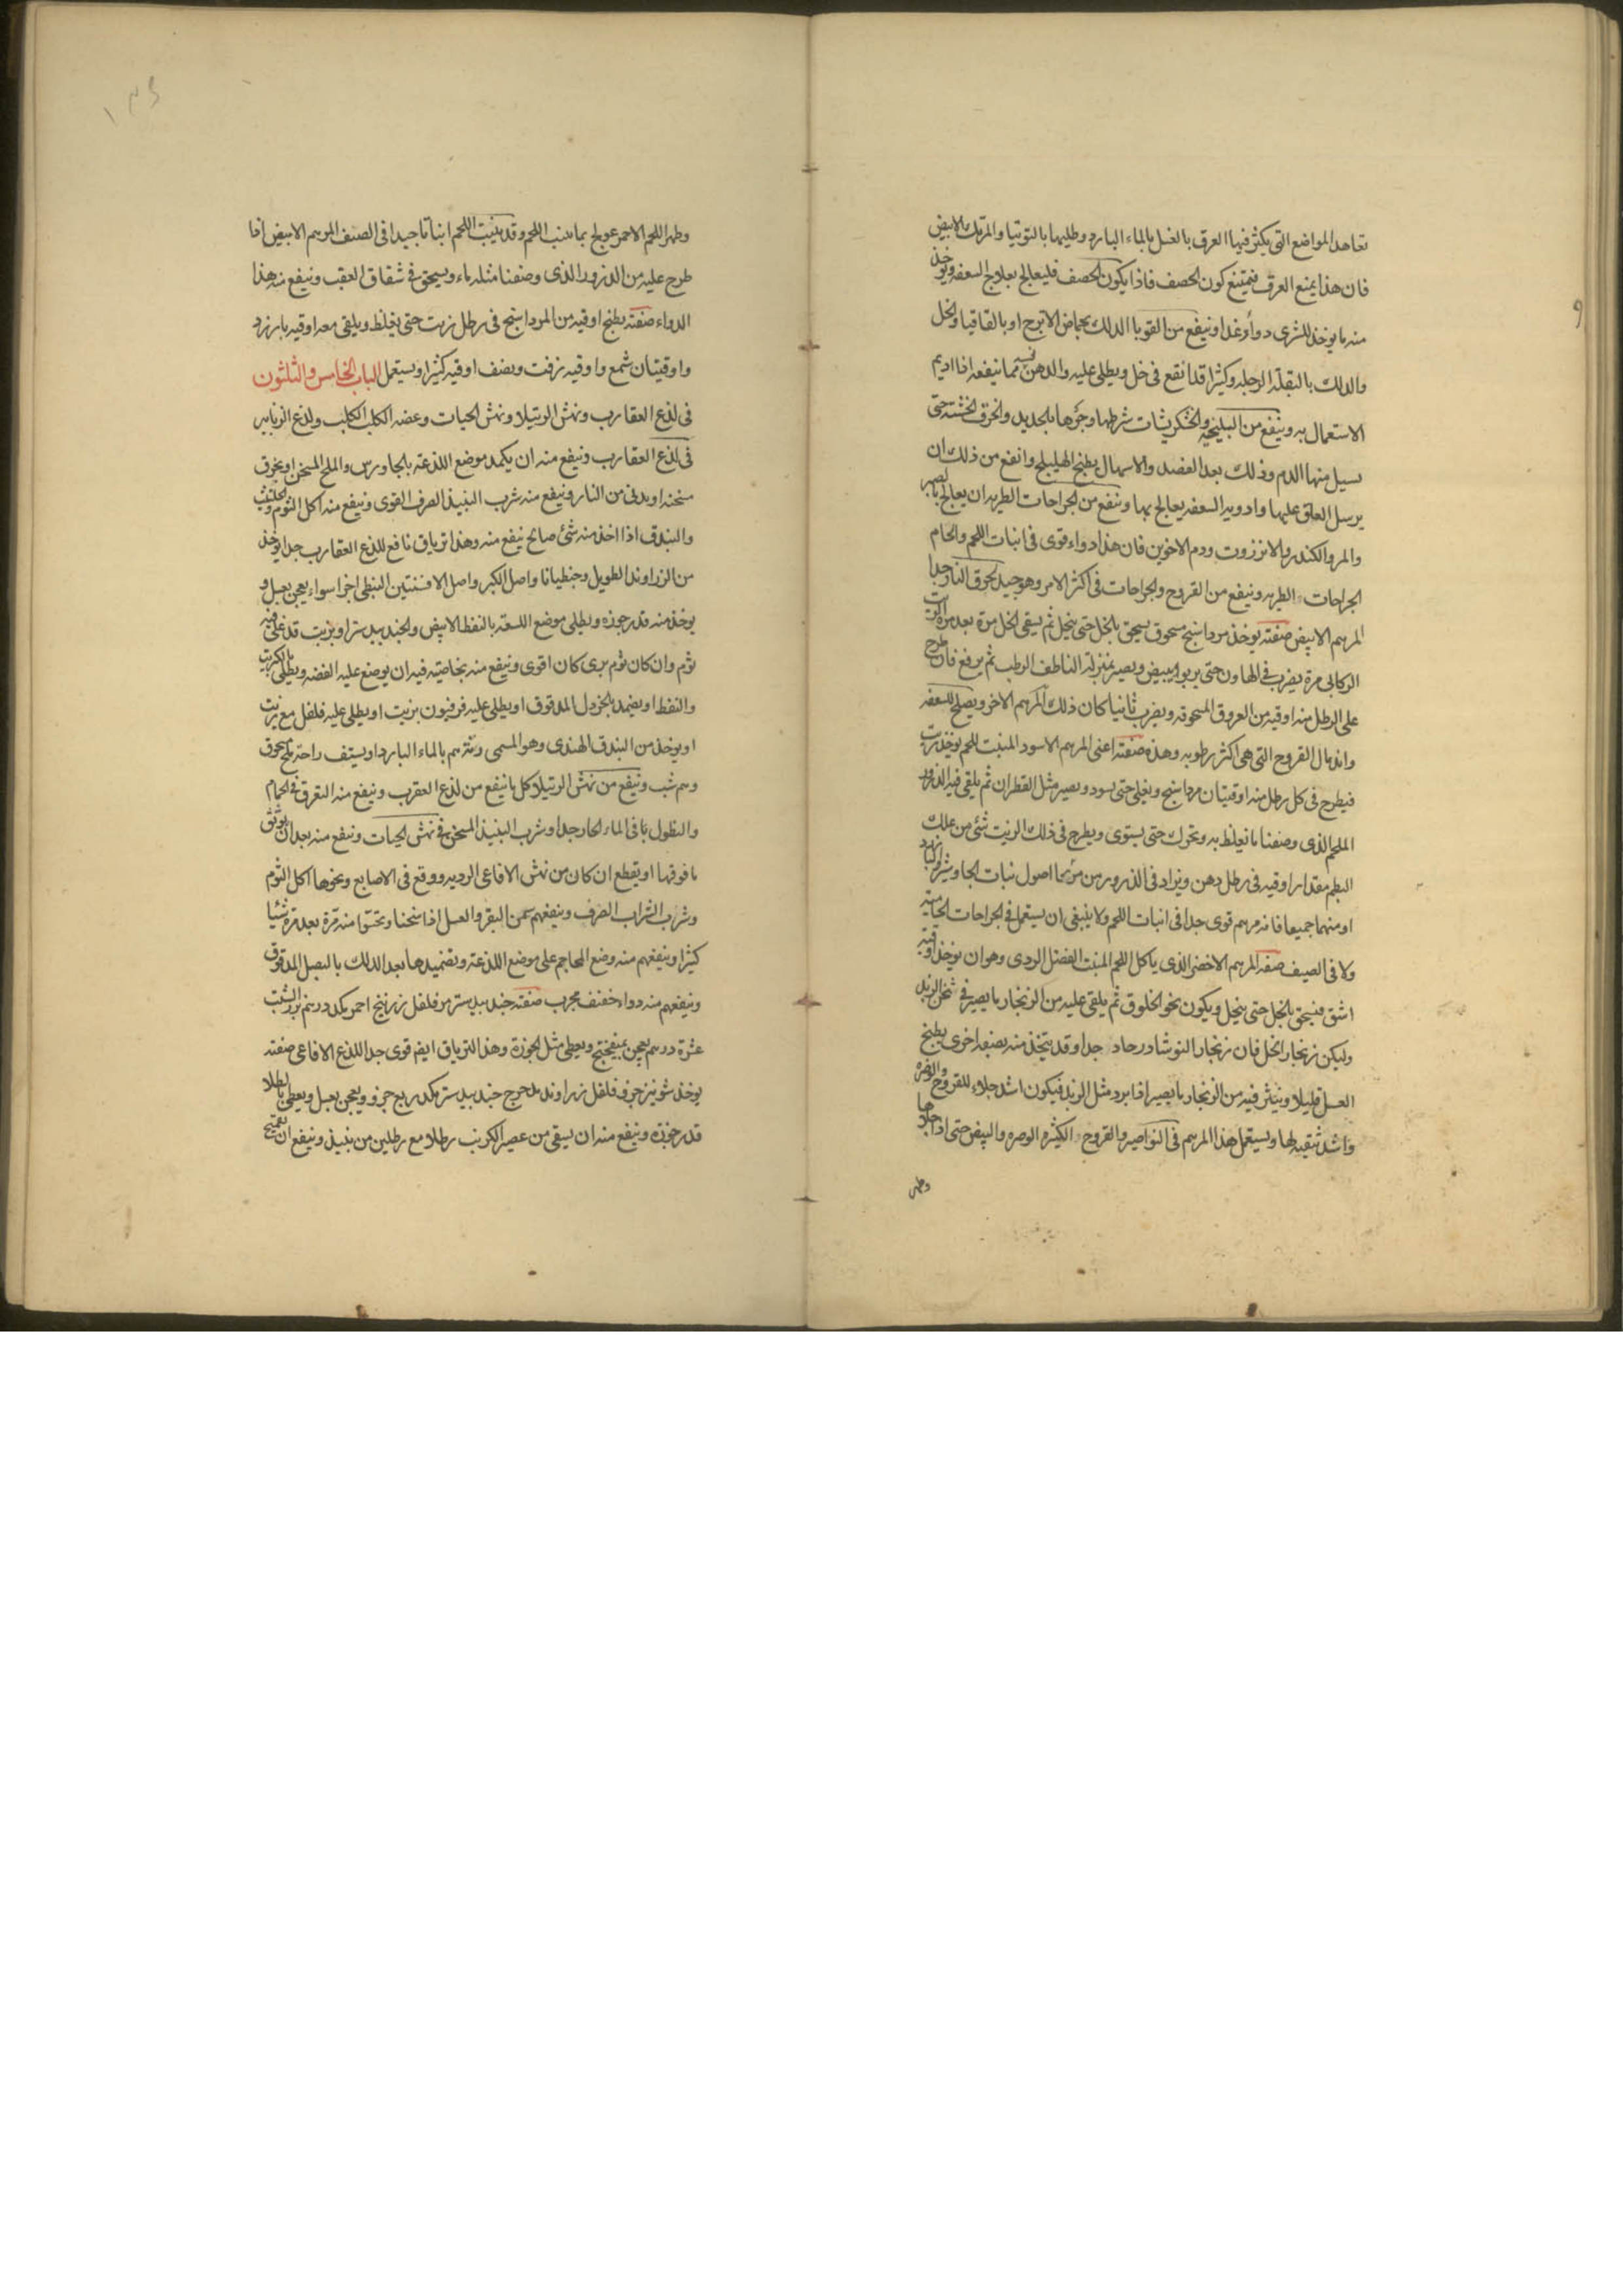 تعاهد المواضع التى يكثر فيها العرق بالغسل بالماء البارد وطليها بالتوتيا والمرتك الابيض
فان هذا يمنع العرق فيمتنع كون الحصف فاذا يكون الحصف فليعالج بعلاج السعفه ويوخذ
منه ما يوخذ للشرى دواء وغذا وينفع من القوبا الدلك بحماض الاترج او بالقاقيا والخل
والدلك بالبقلة الرجله وكثيرا قد انقع فى خل ويطلى عليه والدهن نفسه مما ينفعه اذا اديم
الاستعمال به وينفع من البلخيه والخشكريشات شرطها وجردها بالحديد والخرق الخشنة حتى
يسيل منها الدم وذلك بعد الفصد والاسهال بطبخ الهليلج وانفع من ذلك ان
يرسل العلق عليها وادويه السعفه يعالج بها وينفع من الجراحات الطريه ان يعالج بالصبر
والمر والكندر والانزروت ودم الاخوين فان هذا دواء قوى فى انبات اللحم والحام
الجراحات الطريه وينفع من القروح والجراحات فى اكثر الامر وهو جيد لحرق النار جدا
المرهم الابيض صفته يوخذ مرداسنج مسحوق يسحق بالخل حتى ينحل ثم يسقى الخل مرة بعد مرة والزيت
الركابى مرة يضرب فى الهاون حتى يربو ويبيض ويصير بمنزلة الناطف الرطب ثم يرفع فان طرح
على الرطل منه اوقيه من العروق المسحوقه ويضرب ثانيا كان ذلك المرهم الاخر ويصلح للسعفه
واندمال القروح التى هى اكثر رطوبه وهذه صفته اعنى المرهم الاسود المنبت للحم يوخذ زيت
فيطرح فى كل رطل منه اوقيتان مرداسنج ويغلى حتى يسود ويصير مثل القطران ثم يلقى فيه الذرور
الملحم الذى وصفنا ما يغلظ به ويحرك حتى يستوى ويطرح فى ذلك الزيت شئ من علك
البطم مقدار اوقيه فى رطل دهن ويزاد فى الذرور من اصول نبات الجاوشير
او منهما جميعا فانه مرهم قوى جدا فى انبات اللحم ولا ينبغى ان يستعمل فى الجراحات الحاميه
ولا فى الصيف صفه المرهم الاخضر الذى ياكل اللحم المنبت الفضل الردى وهو ان يوخذ اوقية
اشق فيسحق بالخل حتى ينحل ويكون نحو الخلوق ثم يلقى عليه من الزنجار ما يصير فى ثخن الزبد
وليكن زنجار الخل فان زنجار النوشادر حاد جدا وقد يتخذ منه بصنعه اخرى يطبخ
العسل قليلا وينثر فيه من الزنجار ما يصير اذا برد مثل الزبد فيكون اشد جلاء للقروح والوضره
واشد تنقيه لها ويستعمل هذا المرهم فى النواصير والقروح الكثيره الوضره والبيض حتى اذا جلاها
وظهر
١٣٤
وظهر اللحم الاحمر عولج بما ينبت اللحم وقد ينبت اللحم انباتا جيدا فى الصنف المرهم الابيض اذا
طرح عليه من الذرور الذى وصفنا مثله ماء ويسحق فى شقاق العقب وينفع منه هذا
الدواء صفته يطبخ اوقيه من المرداسنج فى رطل زيت حتى يغلظ ويلقى معه اوقيه بارزد
واوقيتان شمع واوقيه زفت ونصف اوقيه كثيرا ويستعمل الباب الخامس والثلثون
فى لذع العقارب ونهش الرتيلا ونهش الحيات وعضه الكلب الكلب ولذع الزنابير
فى لذع العقارب وينفع منه ان يكمد موضع اللذعة بالجاورس والملح المسخن او بخرق
سخنه او يدنى من النار وينفع منه شرب النبيذ الصرف القوى وينفع منه اكل الثوم والحلتيت
والبندق اذا اخذ منه شئ صالح ينفع منه وهذا ترياق نافع للذع العقارب جدا يوخذ
من الزراوند الطويل وجنطيانا واصل الكبر واصل الافسنتين النبطى اجزا سواء يعجن بعسل و
يوخذ منه قدر جوزه ويطلى موضع اللسعة بالنفط الابيض والجندبيدستر او بزيت قد غلى فيه
ثوم وان كان ثوم برى كان اقوى وينفع منه بخاصيه فيه ان يوضع عليه الفضه ويطلى بالكبريت
والنفط او يضمد بالخردل المدقوق او يطلى عليه فرفيون بزيت او يطلى عليه فلفل مع زيت
او يوخذ من البندق الهندى وهو المسمى رته درهم بالماء البارد او يستف راحة ملح مسحوق
وينفع من نهش الرتيلا كل ما ينفع من لذع العقرب وينفع منه التعرق فى الحمام
والنطول بالماء الحار جدا وشرب النبيذ المسخن فى نهش الحيات وينفع منه بعد ان يوثق
ما فوقها او يقطع ان كان من نهش الافاعى الرديه ووقع فى الاصابع ونحوها اكل الثوم
وشرب الشراب الصرف وينفعهم سمن البقر والعسل اذا سخنا وتحسوا منه مرة بعد مرة شيئا
كثيرا وينفعهم منه وضع المحاجم على موضع اللذعة وتضميدها بعد الدلك بالبصل المدقوق
وينفعهم منه دواء خفيف مجرب صفته جندبيدستر مر فلفل زرنيخ احمر مكد درهم بزر الشبت
عشرة درهم يعجن بميفختج ويعطى مثل الجوزة وهذا الترياق ايضا قوى جدا للذع الافاعى صفته
يوخذ شونيز جزو فلفل زراوند مدحرج جندبيدستر مكد ربع جزو ويعجن بعسل ويعطى بالطلا
قدر جوزه وينفع منه ان يسقى من عصير الكرنب رطلا مع رطلين من نبيذ وينفع ان